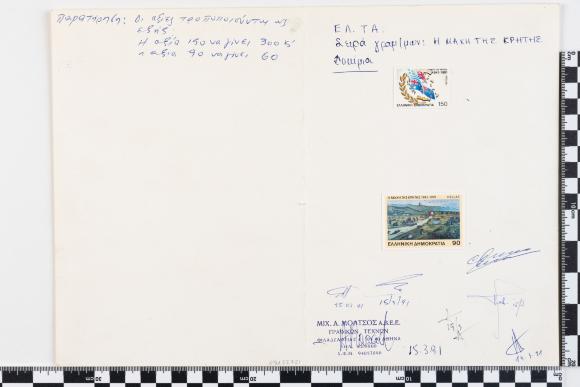 Παρατήρηση: Οι αξίες τροποποιούνται ως
εξής
Η αξία 150 να γίνει 300 &
η αξία 90 να γίνει 60
ΕΛ. ΤΑ.
Σειρά γραμ/μων: Η ΜΑΧΗ ΤΗΣ ΚΡΗΤΗΣ
Δοκίμια
ΕΛΛΗΝΙΚΗ ΔΗΜΟΚΡΑΤΙΑ 150
Η ΜΑΧΗ ΤΗΣ ΚΡΗΤΗΣ 1941-1991 HELLAS
ΕΛΛΗΝΙΚΗ ΔΗΜΟΚΡΑΤΙΑ 90
15/3/91
ΜΙΧ. Α. ΜΟΑΤΣΟΣ Α.Β.Ε.Ε.
ΓΡΑΦΙΚΩΝ ΤΕΧΝΩΝ
15.3.91